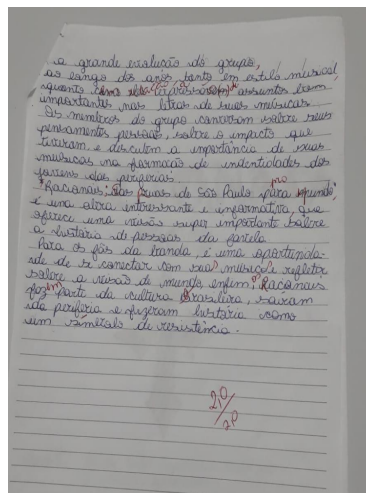 a grande evolução do grupo,
ao longo dos anos, tanto em estilo musical
quanto com assuntos bem
importantes nas letras de suas músicas.
Os membros do grupo conversam sobre seus
pensamentos pessoais, sobre o impacto que
tiveram e discutem a importância de suas
musicas na formação de indentidades dos
jovens das periferias.
"Racionais: das ruas de São Paulo para pro mundo"
é uma obra interessante e informativa, que
oferece uma visão super importante sobre
a história de pessoas da favela
Para os fãs da banda, é uma oportunida-
de de si conectar com sua música e refletir
sobre a visão de mundo, enfim, os Racionais
fazem parte da cultura Brasileira, saíram
da periferia e fizeram história como
um símbolo de resistência.
2,0
/
2,0